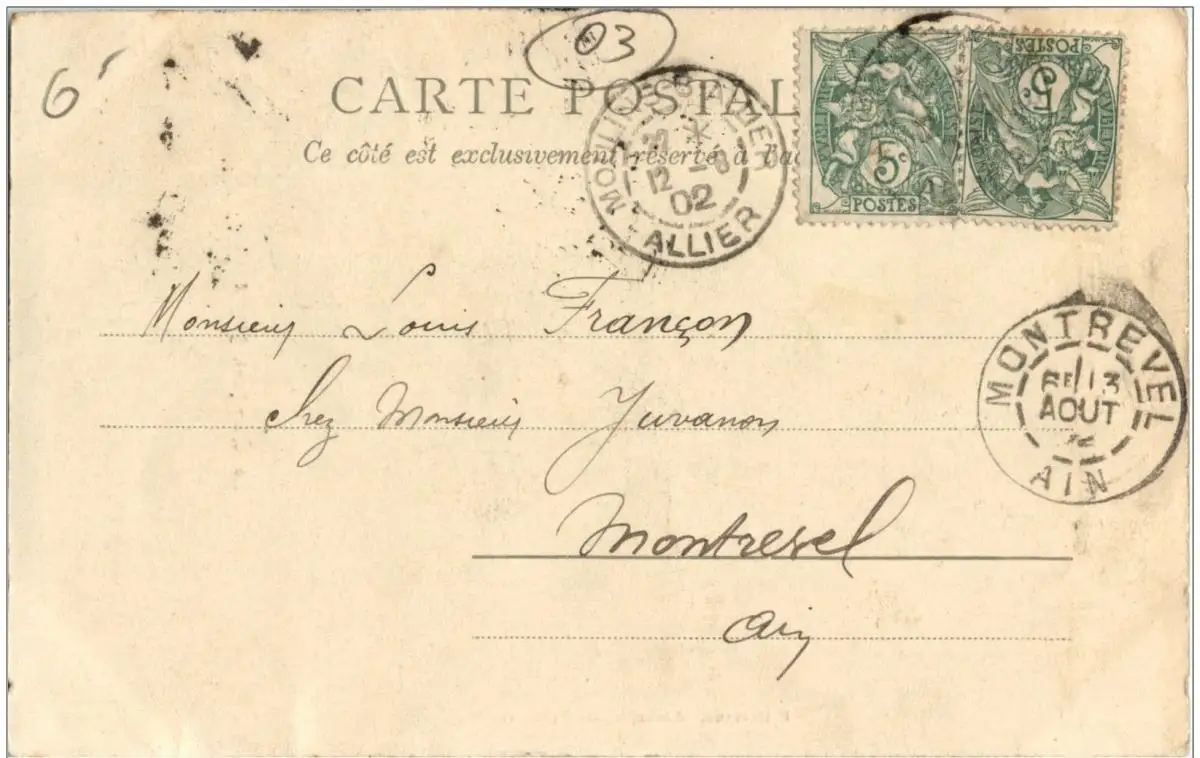 6'
03
CARTE POSTAL
Ce côté est exclusivement réservé à l'a
12 -8
02
ALLIER
5c
POSTES
5c
POSTES
Monsieur Louis Françon
Chez Monsieur Juvanon
Montrevel
Ain
MONTREVEL
RE 13
AOUT
AIN